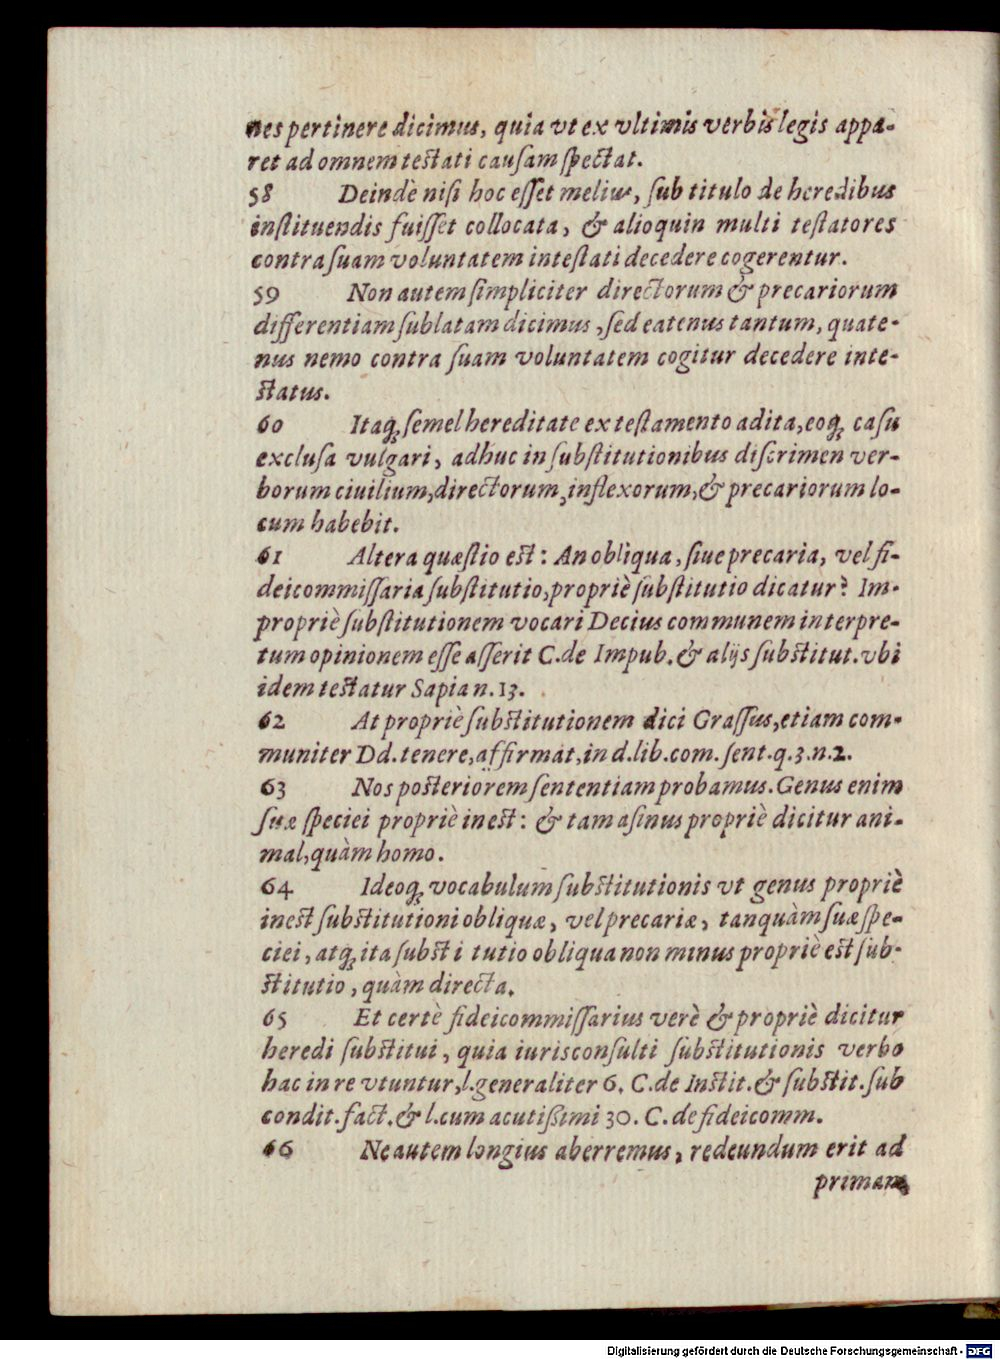 nes pertinere dicimus, quia vt ex vltimis verbis legis appa-
ret ad omnem testati causam spectat.
58 Deindè nisi hoc esset melius, sub titulo de heredibus
instituendis fuisset collocata, & alioquin multi testatores
contra suam voluntatem intestati decedere cogerentur.
59 Non autem simpliciter directorum & precariorum
differentiam sublatam dicimus, sed eatenus tantum, quate-
nus nemo contra suam voluntatem cogitur decedere inte-
status.
60 Itaq́; semel hereditate ex testamento adita, eoq́; casu
exclusa vulgari, adhuc in substitutionibus discrimen ver-
borum ciuilium, directorum, inflexorum, & precariorum lo-
cum habebit.
61 Altera quæstio est: An obliqua, siue precaria, vel fi-
deicommissaria substitutio, propriè substitutio dicatur? Im-
propriè substitutionem vocari Decius communem interpre-
tum opinionem esse asserit C. de Impub. & alijs substitut. vbi
idem testatur Sapia n. 13.
62 At propriè substitutionem dici Grassus, etiam com-
muniter Dd. tenere, affirmat, in d. lib. com. sent. q. 3. n. 2.
63 Nos posteriorem sententiam probamus. Genus enim
suæ speciei propriè inest: & tam asinus propriè dicitur ani-
mal, quàm homo.
64 Ideoq́; vocabulum substitutionis vt genus propriè
inest substitutioni obliquæ, vel precariæ, tanquàm suæ spe-
ciei, atq́; ita substi tutio obliqua non minus propriè est sub-
stitutio, quàm directa.
65 Et certè fideicommissarius verè & propriè dicitur
heredi substitui, quia iurisconsulti substitutionis verbo
hac in re vtuntur, l. generaliter 6. C. de Instit. & substit. sub
condit. fact. & l. cum acutißimi 30. C. de fideicomm.
66 Ne autem longius aberremus, redeundum erit ad
primam
Digitalisierung gefördert durch die Deutsche Forschungsgemeinschaft - DFG